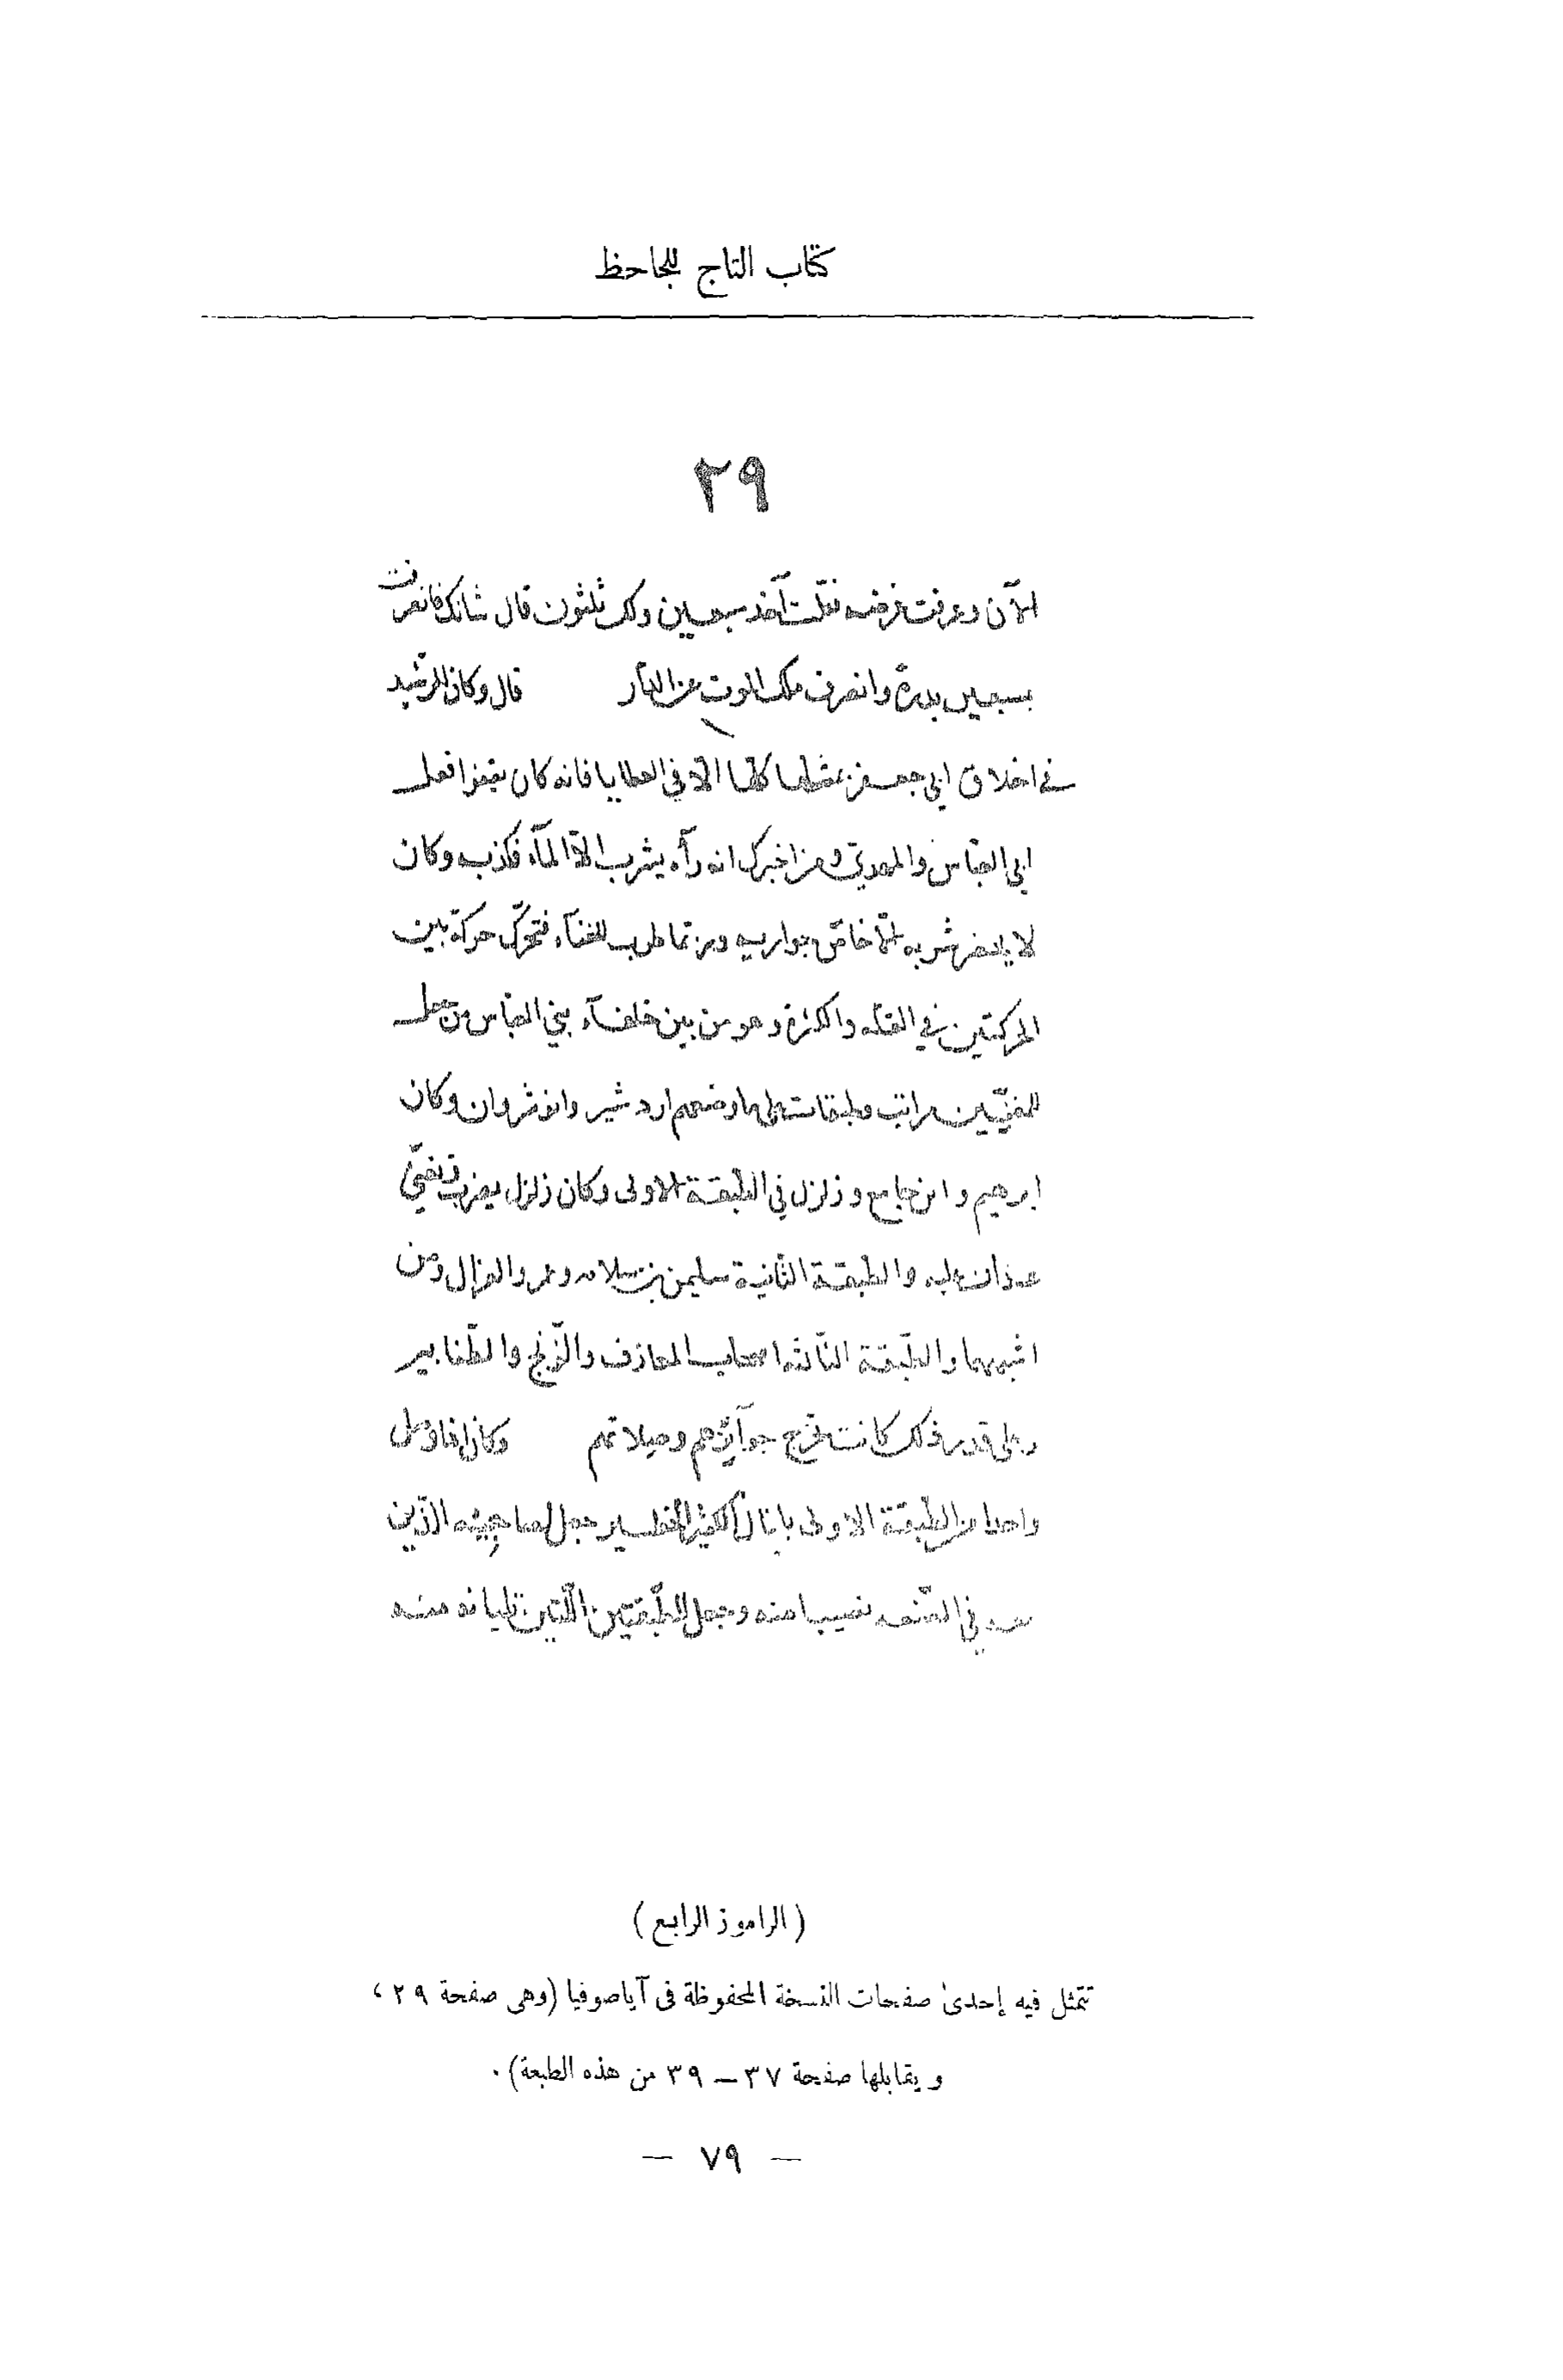 كتاب التاج للجاحظ
٢٩
الآن وعرفت غرضه فقلت آخذ سبعين ولك ثلثون قال شانك فانصرفت
بسبعين بدرة وانصرف ملك الموت عن الدار قال وكان الرشيد
في اخلاق ابي جعفر يمتثلها كلها الا في العطايا فانه كان يقفوا فعل
ابي العباس والمهدي ومن اخبرك انه رآه يشرب الا المآء فكذبه وكان
لا يحضر شربه الا خاصّ جواريه وربّما طرب للغنآء فتحرّك حركة بين
الحركتين في القلة والكثرة وهو من بين خلفآء بني العباس من جعل
للمغنّيين مراتب وطبقات على ما وضعهم اردشير وانوشروان وكان
ابرهيم وابن جامع وزلزل في الطبقة الاولى وكان زلزل يضرب ويغني
هذان عليه والطبقة الثانية سليمن بن سلام وعمرو الغزال ومن
اشبههما والطبقة الثالثة اصحاب المعازف والونج والطنابير
وعلى قدر ذلك كانت تخرج جوآئزهم وصلاتهم وكان اذا وصل
واحدا من الطبقة الاولى بالمال الكثير الخطير جعل لصاحبيه الذين
معه في الصنعة نصيبا منه وجعل للطبقتين اللتين تليانه منه
(الراموز الرابع)
تتمثل فيه إحدى صفحات النسخة المحفوظة فى آياصوفيا (وهى صفحة ٢٩ ،
ويقابلها صفحة ٣٧ – ٣٩ من هذه الطبعة).
— ٧٩ —